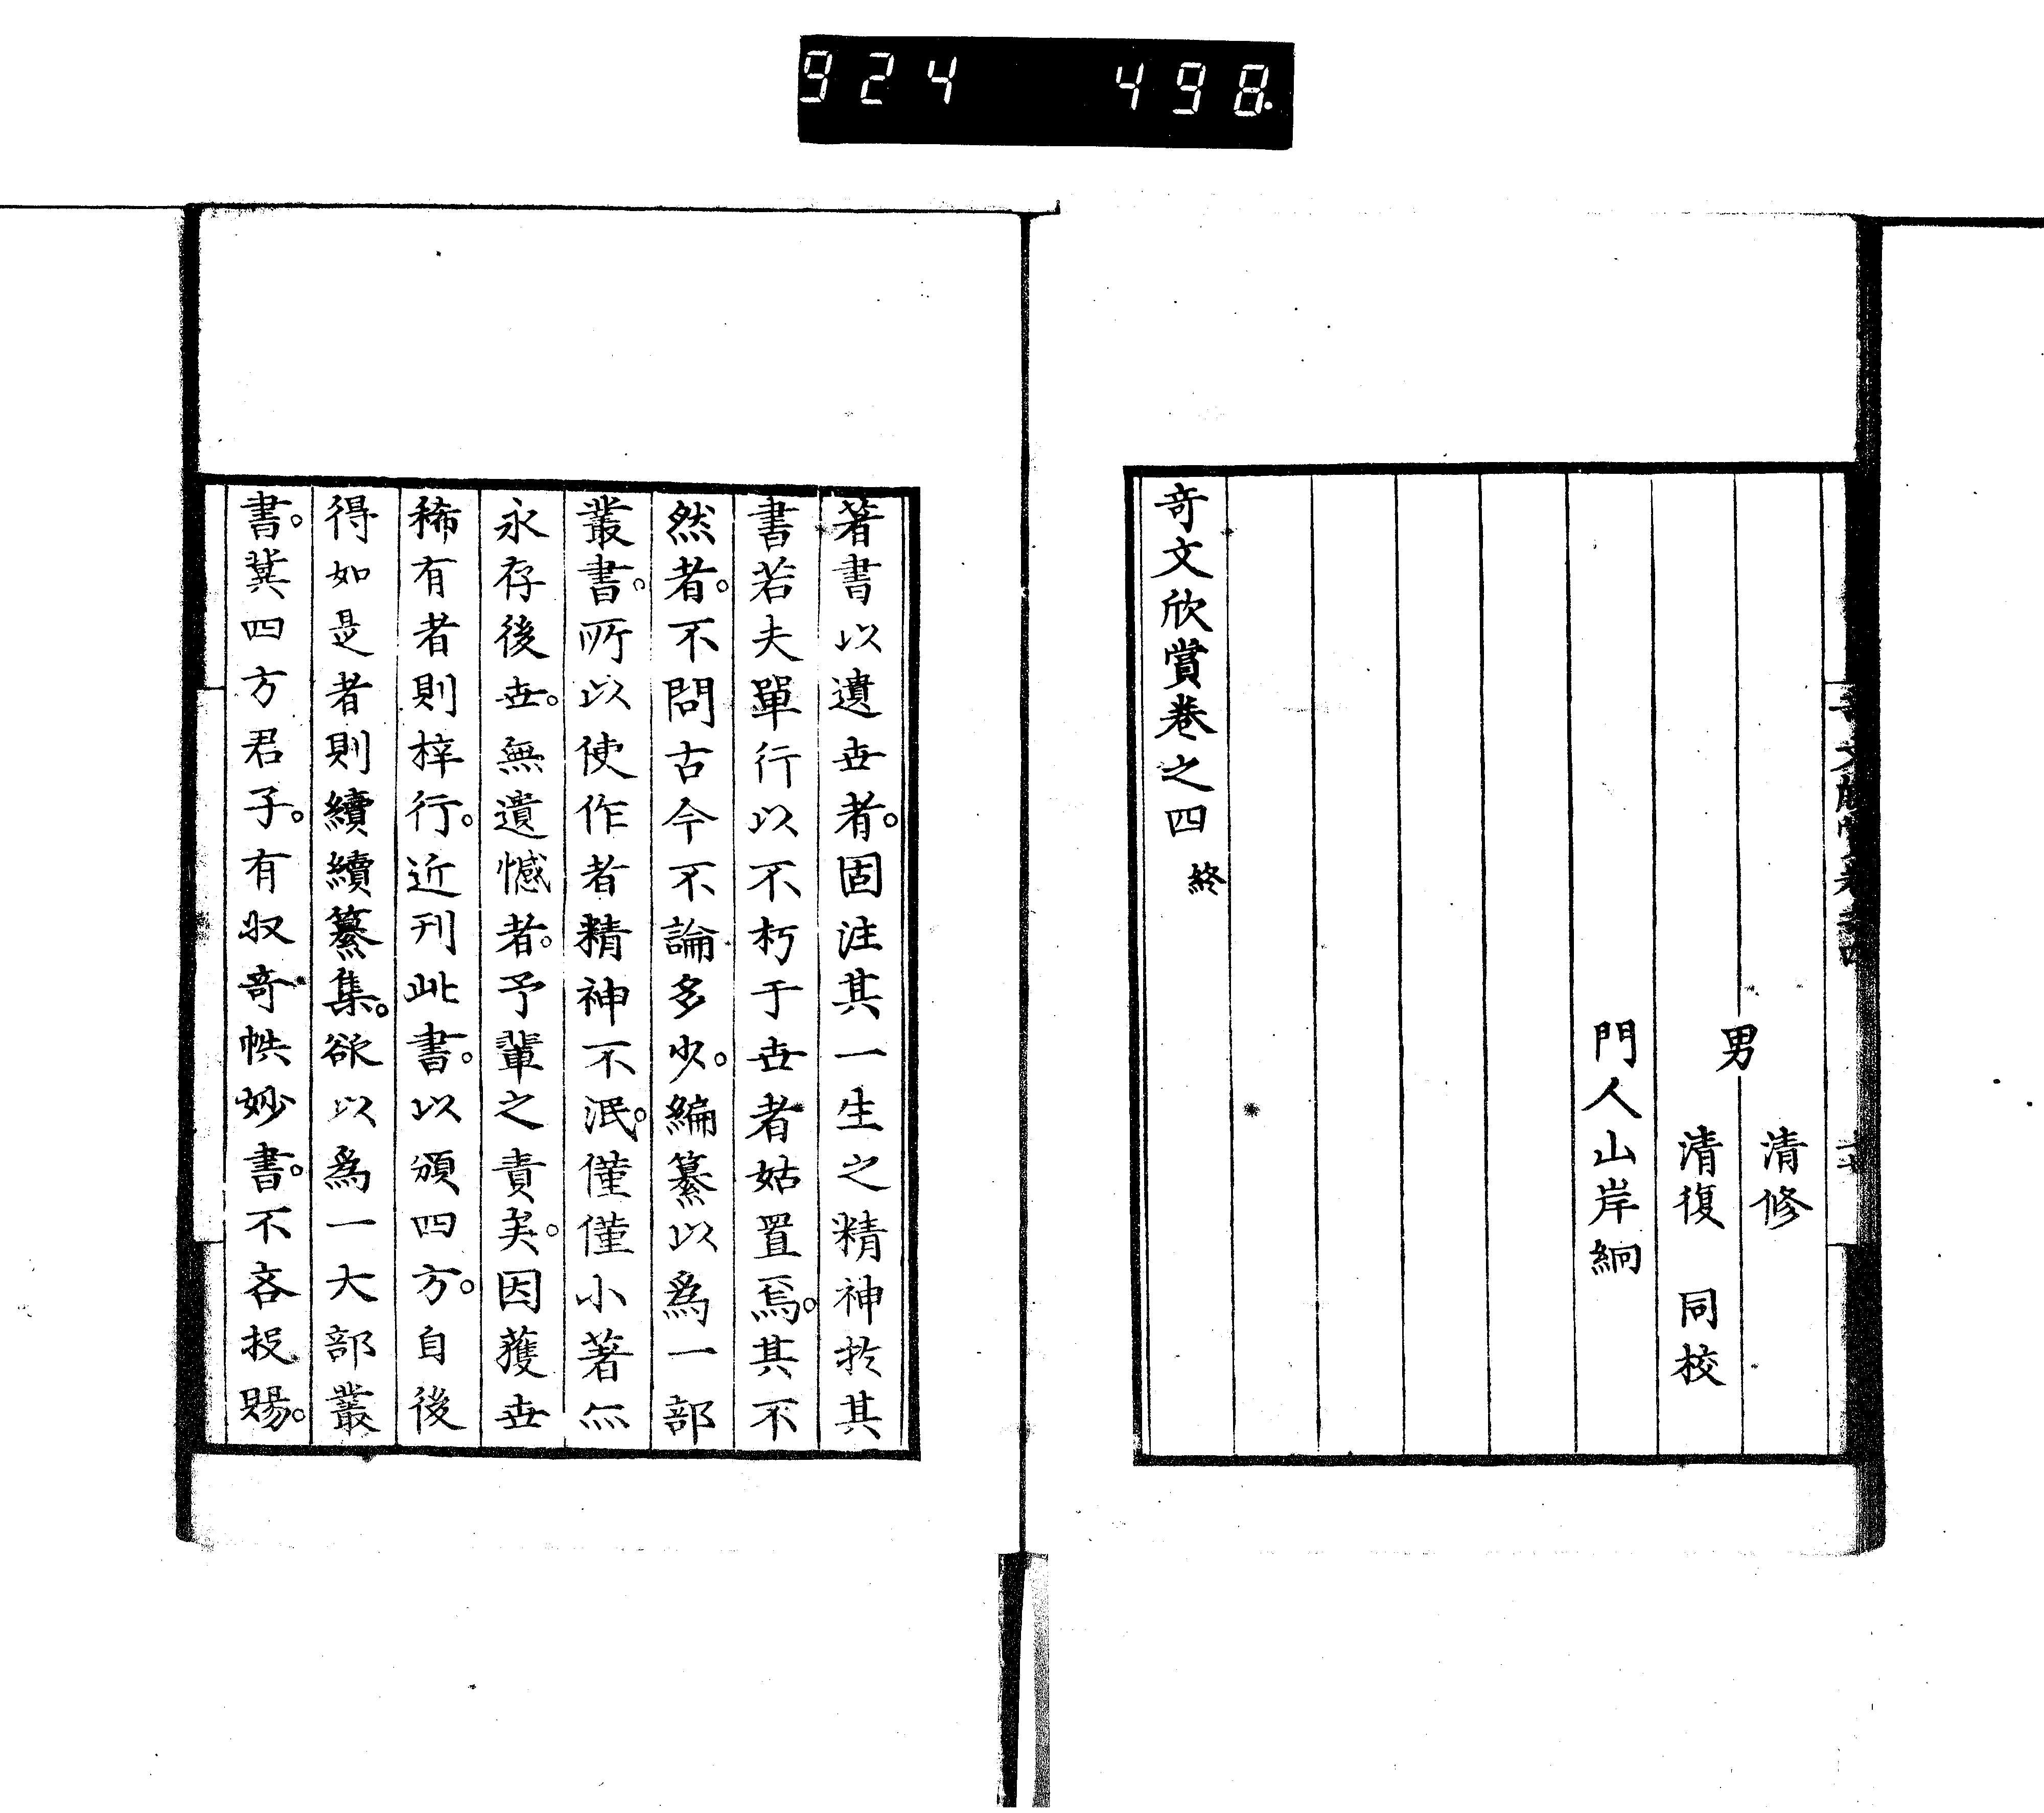 924 498.
清修
男
清復 同校
門人山岸絅
奇文欣賞卷之四 終
著書以遺世者。固注其一生之精神於其
書若夫單行以不朽于世者姑置焉。其不
然者。不問古今不論多少。編纂以爲一部
叢書。所以使作者精神不泯。僅僅小著亦
永存後世。無遺憾者。予輩之責矣。因獲世
稀有者則梓行。近刊此書。以頒四方。自後
得如是者則續續纂集。欲以爲一大部叢
書。冀四方君子。有収奇帙妙書。不吝投賜。